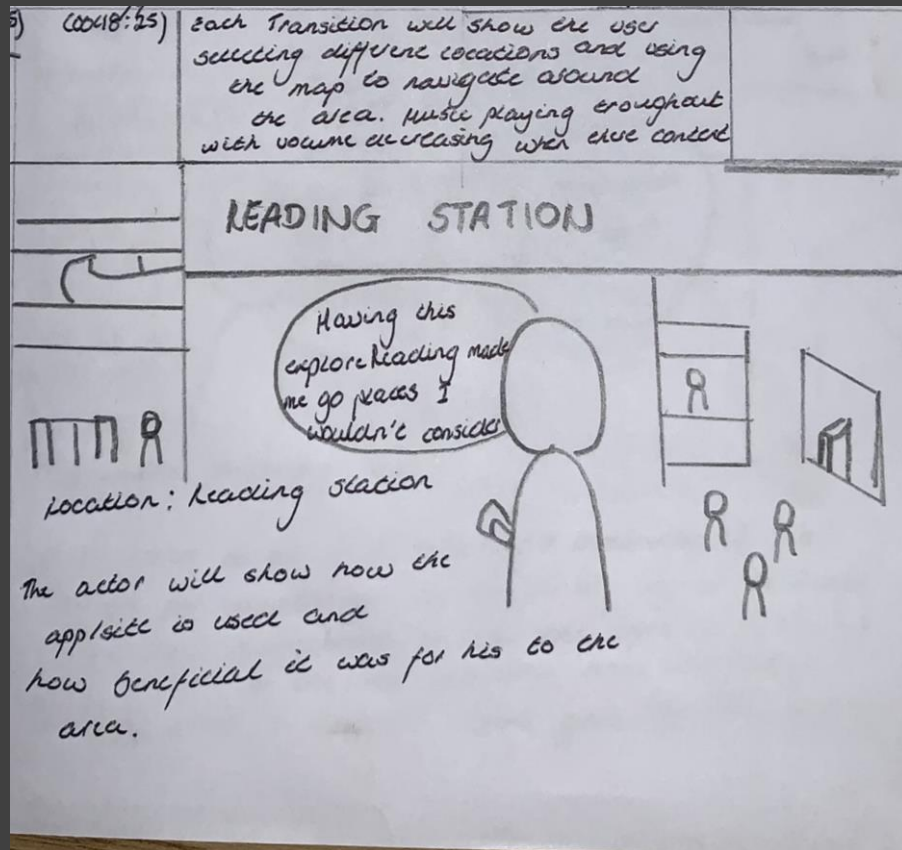 (00:18:25)
Each Transition will show the user
selecting different locations and using
the map to navigate around
the area. Music playing troughout
with volume decreasing when there content
READING STATION
Having this
explore Reading made
me go places I
wouldn't consider
Location: Reading station
The actor will show how the
app/site is used and
how beneficial it was for his to the
area.